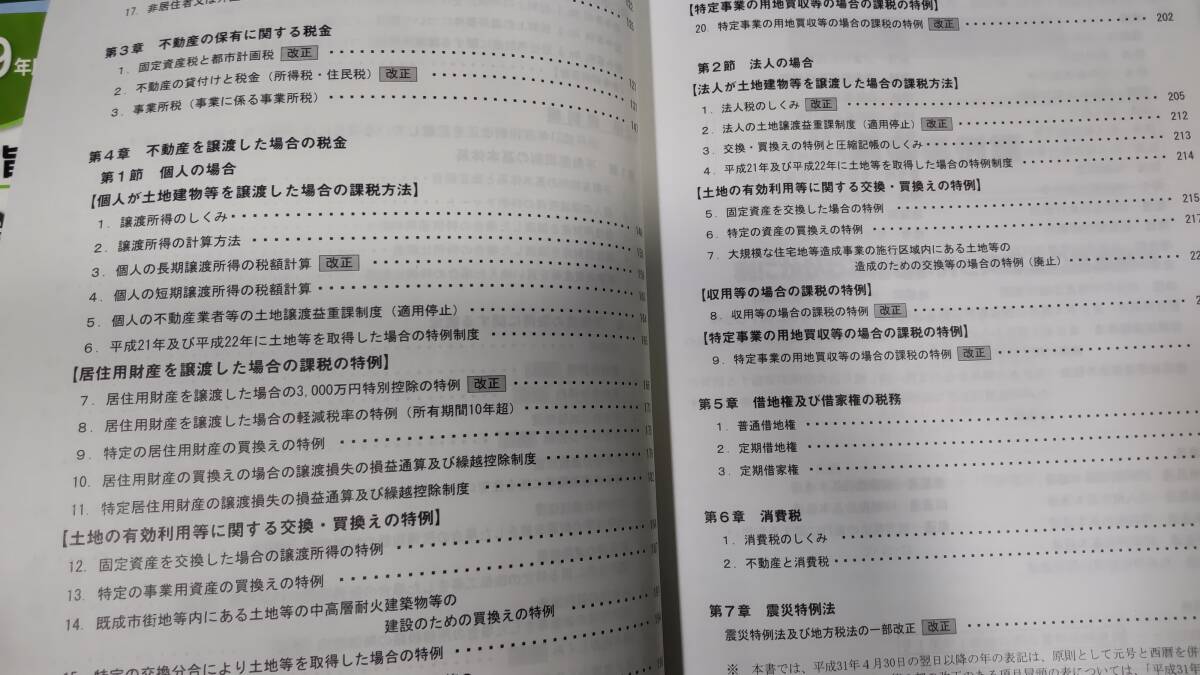 9年
17. 非居住者又は
第3章 不動産の保有に関する税金
1. 固定資産税と都市計画税 改正
2. 不動産の貸付けと税金（所得税・住民税）改正 121
3. 事業所税（事業に係る事業所税）
第4章 不動産を譲渡した場合の税金
第1節 個人の場合
【個人が土地建物等を譲渡した場合の課税方法】
1. 譲渡所得のしくみ
2. 譲渡所得の計算方法
3. 個人の長期譲渡所得の税額計算 改正
4. 個人の短期譲渡所得の税額計算
5. 個人の不動産業者等の土地譲渡益重課制度（適用停止）
6. 平成21年及び平成22年に土地等を取得した場合の特例制度
【居住用財産を譲渡した場合の課税の特例】
7. 居住用財産を譲渡した場合の3,000万円特別控除の特例 改正
8. 居住用財産を譲渡した場合の軽減税率の特例（所有期間10年超）
9. 特定の居住用財産の買換えの特例
10. 居住用財産の買換えの場合の譲渡損失の損益通算及び繰越控除制度
11. 特定居住用財産の譲渡損失の損益通算及び繰越控除制度
【土地の有効利用等に関する交換・買換えの特例】
12. 固定資産を交換した場合の譲渡所得の特例
13. 特定の事業用資産の買換えの特例
14. 既成市街地等内にある土地等の中高層耐火建築物等の
建設のための買換えの特例
15. 特定の交換分合により土地等を取得した場合の特例
【特定事業の用地買収等の場合の課税の特例】
20. 特定事業の用地買収等の場合の課税の特例 改正 202
第2節 法人の場合
【法人が土地建物等を譲渡した場合の課税方法】
1. 法人税のしくみ 改正 205
2. 法人の土地譲渡益重課制度（適用停止）改正 212
3. 交換・買換えの特例と圧縮記帳のしくみ 213
4. 平成21年及び平成22年に土地等を取得した場合の特例制度 214
【土地の有効利用等に関する交換・買換えの特例】
5. 固定資産を交換した場合の特例 215
6. 特定の資産の買換えの特例 217
7. 大規模な住宅地等造成事業の施行区域内にある土地等の
造成のための交換等の場合の特例（廃止） 22
【収用等の場合の課税の特例】
8. 収用等の場合の課税の特例 改正 2
【特定事業の用地買収等の場合の課税の特例】
9. 特定事業の用地買収等の場合の課税の特例 改正
第5章 借地権及び借家権の税務
1. 普通借地権
2. 定期借地権
3. 定期借家権
第6章 消費税
1. 消費税のしくみ
2. 不動産と消費税
第7章 震災特例法
震災特例法及び地方税法の一部改正 改正
※ 本書では、平成31年4月30日の翌日以降の年の表記は、原則として元号と西暦を併
改正のある項目冒頭の表については、「平成31年